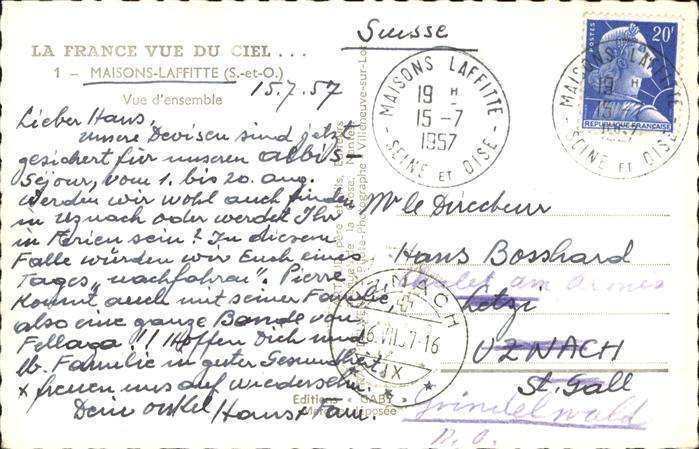 Suisse
LA FRANCE VUE DU CIEL...
1 - MAISONS-LAFFITTE (S.-et-O.)
Vue d'ensemble
15.7.57
Lieber Hans,
unsere Devisen sind jetzt
gesichert für unseren Albis-
Séjour, vom 1. bis 20. aug.
Werden wir wohl auch finden
in Uznach oder werdet Ihr
in Ferien sein? In diesem
Falle würden wir Euch eines
Tages "nachfahren". Pierre
kommt auch mit seiner Familie
also eine ganze Bande von
Fellaga!! Hoffen Dich und
lb. Familie in guter Gesundheit
x freuen uns auf wiedersehn.
Dein onkel Hans + am.
Editions "GABY"
Marque déposée
MAISONS LAFFITTE
19 H
15 -7
1957
SEINE ET OISE
20F
POSTES
REPUBLIQUE FRANÇAISE
MAISONS LAFFITTE
19 H
15 -7
1957
SEINE ET OISE
Mr le Directeur
Hans Bosshard
Letzi
UZNACH
St. Gall
Grindelwald
UZNACH
16.VII.57-16